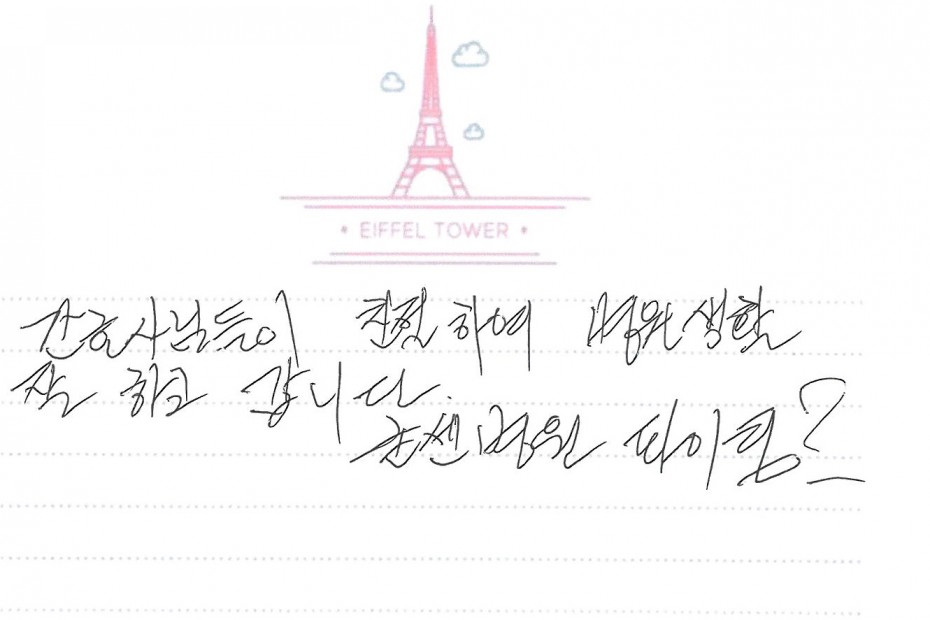 EIFFEL TOWER
간호사님들이 친절하여 병원생활
잘 하고 갑니다.
손쎈병원 파이팅?